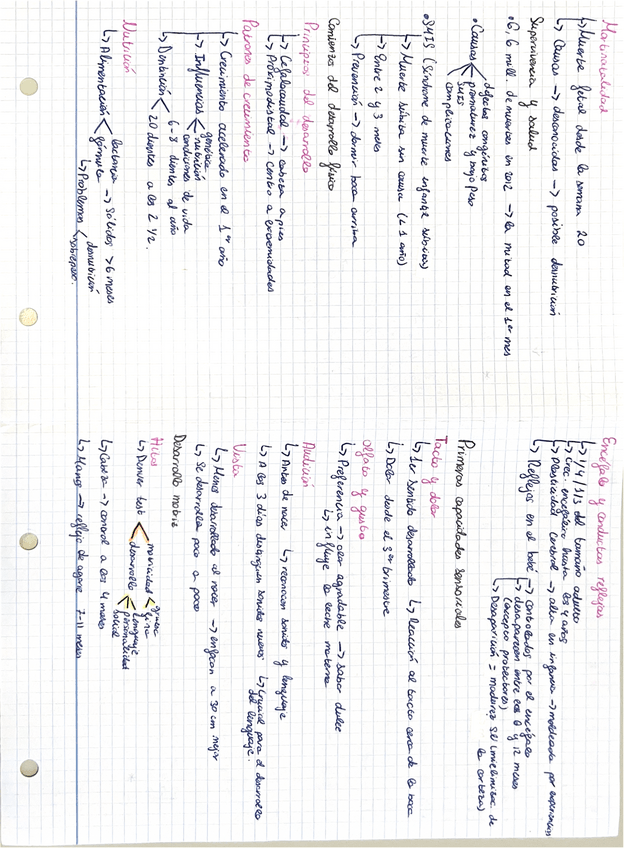 Mortinatalidad
↳ Muerte fetal desde la semana 20
↳ Causas → desconocidas → posible desnutrición
Supervivencia y salud
• 6,6 mill. de muertes en 2012 → la mitad en el 1er mes
• Causas
defectos congénitos
prematurez y bajo peso
SMIS
complicaciones
• SMIS (Síndrome de muerte infantil súbita)
↳ Muerte súbita sin causa (< 1 año)
→ Entre 2 y 3 meses
↳ Prevención → dormir boca arriba
Comienzo del desarrollo físico
Principios del desarrollo
↳ Cefalocaudal → cabeza a pies
↳ Proximodistal → centro a extremidades
Patrones de crecimiento
↳ Crecimiento acelerado en el 1er año
→ Influencias
genética
nutrición
condiciones de vida
↳ Dentición
6-8 dientes al año
20 dientes a los 2 1/2.
Nutrición
↳ Alimentación
lactancia → Sólidos > 6 meses
fórmula
↳ Problemas
desnutrición
sobrepeso.
Encéfalo y conductas reflejas
↳ 1/4 / 1/3 del tamaño adulto
↳ Crec. encefálico hasta los 4 años
↳ Plasticidad cerebral → alta en infancia → moldeada por experiencias
↳ Reflejos en el bebé
→ controlados por el encéfalo
↳ desaparecen entre los 6 y 12 meses
(excepto protectores)
↳ Desaparición = madurez SC (mieliniza. de
la corteza)
Primeras capacidades sensoriales
Tacto y dolor
↳ 1er sentido desarrollado ↳ Reacción al tacto cerca de la boca
↳ Dolor desde el 3er trimestre
Olfato y gusto
↳ Preferencia → olor agradable → sabor dulce
↳ influye la leche materna
Audición
↳ Antes de nacer ↳ reconocen sonidos y lenguaje
↳ A los 3 días distinguen sonidos nuevos ↳ Crucial para el desarrollo
del lenguaje.
Vista
↳ Menos desarrollado al nacer → enfocan a 30 cm mejor
↳ Se desarrolla poco a poco
Desarrollo motriz
Hitos
↳ Denver test
motricidad
gruesa
fina
desarrollo
lenguaje
personalidad
social
↳ Cabeza → control a los 4 meses
↳ Manos → reflejo de agarre 7-11 meses